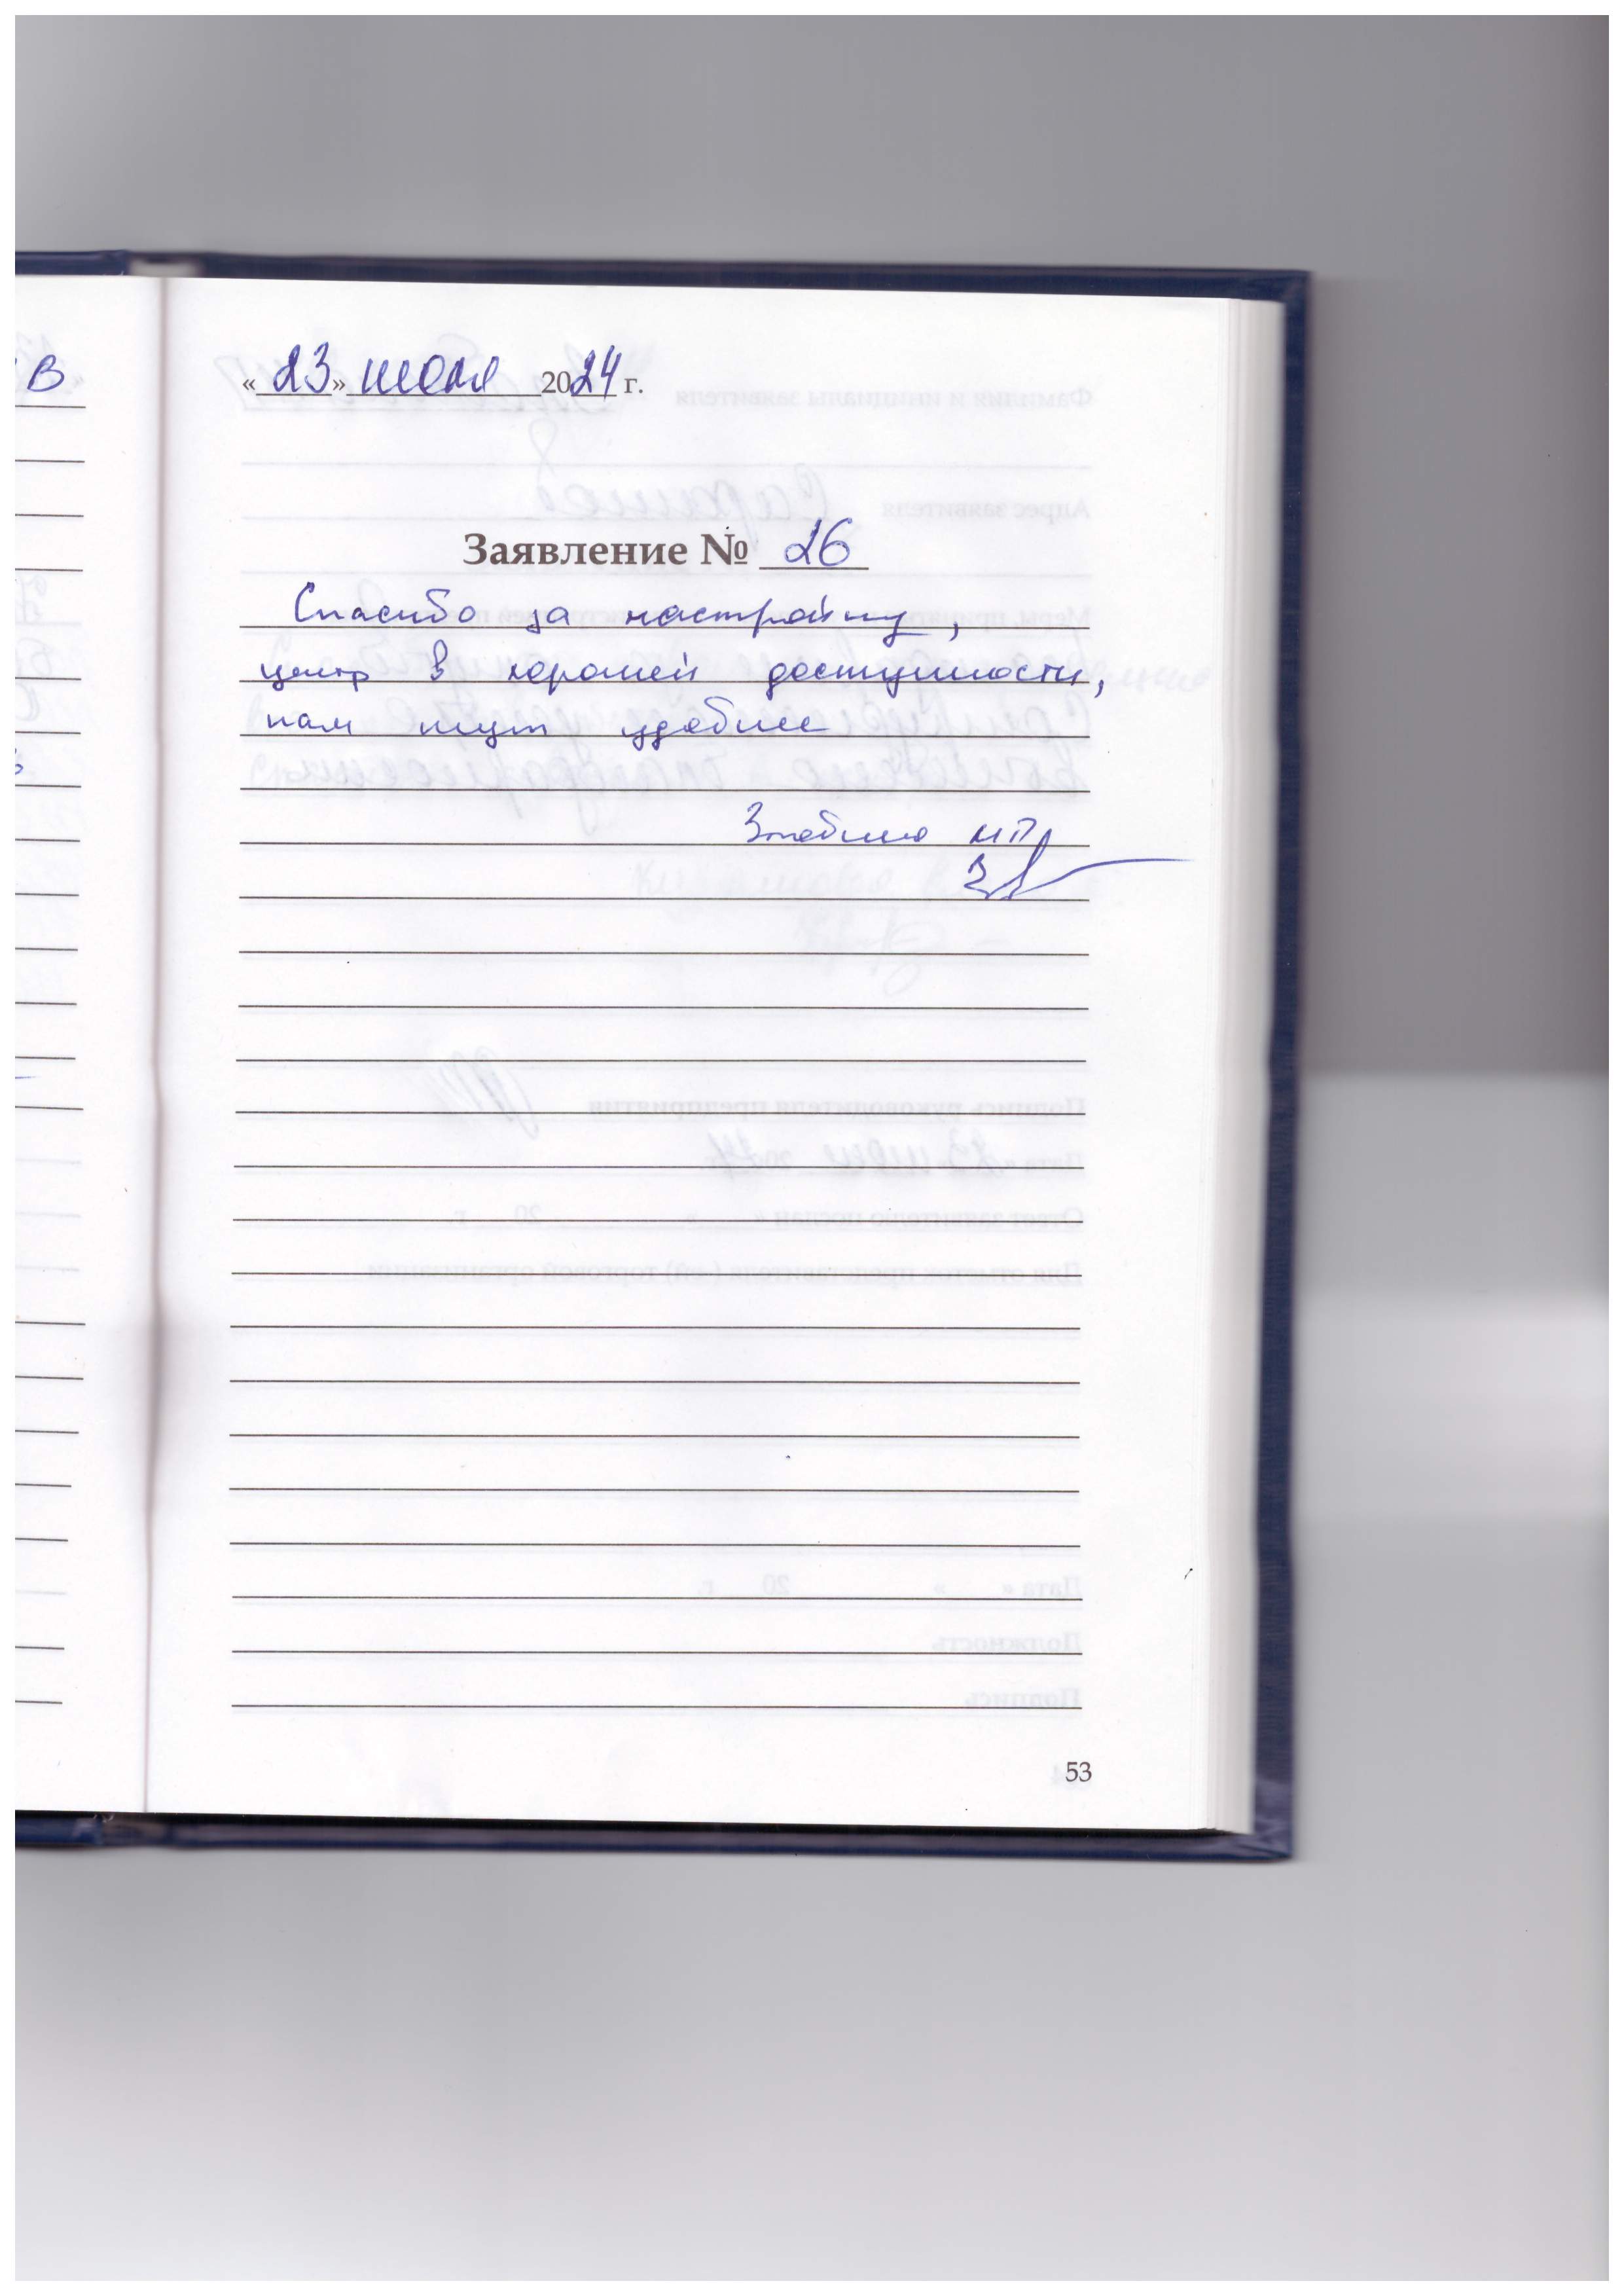 В
«23» июля 2024 г.
Заявление № 26
Спасибо за настройку,
центр в хорошей доступности,
нам тут удобнее
МП
53